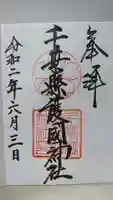 奉拝
千葉縣護國神社
令和二年六月三日